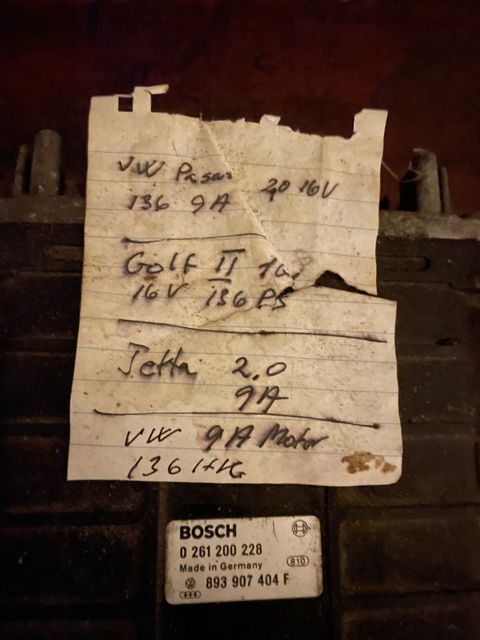 VW Passat 2.0 16V
136 9A
Golf II
16V 136 PS
Jetta 2.0
9A
VW 9A Motor
136
BOSCH
0 261 200 228
Made in Germany 810
893 907 404 F